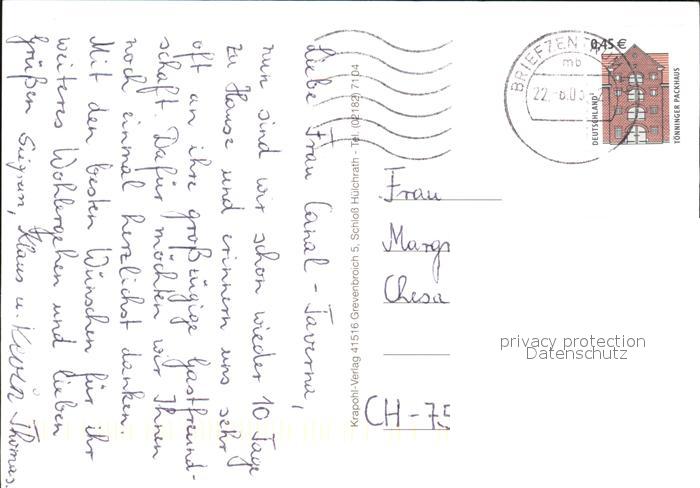 Liebe Frau Canal - Taverna,
nun sind wir schon wieder 10 Tage
zu Hause und erinnern uns sehr
oft an ihre großzügige Gastfreund-
schaft. Dafür möchten wir Ihnen
noch einmal herzlichst danken.
Mit den besten Wünschen für ihr
weiteres Wohlergehen und lieben
Grüßen Siegrun, Klaus u. Kevin Thomas.
Krapohl-Verlag 41516 Grevenbroich 5, Schloß Hülchrath - Tel. (02182) 7104
BRIEFZEN
mb
22.-8.03-
0,45 €
DEUTSCHLAND
TÖNNINGER PACKHAUS
Frau
Margr
Chesa
CH - 75
privacy protection
Datenschutz